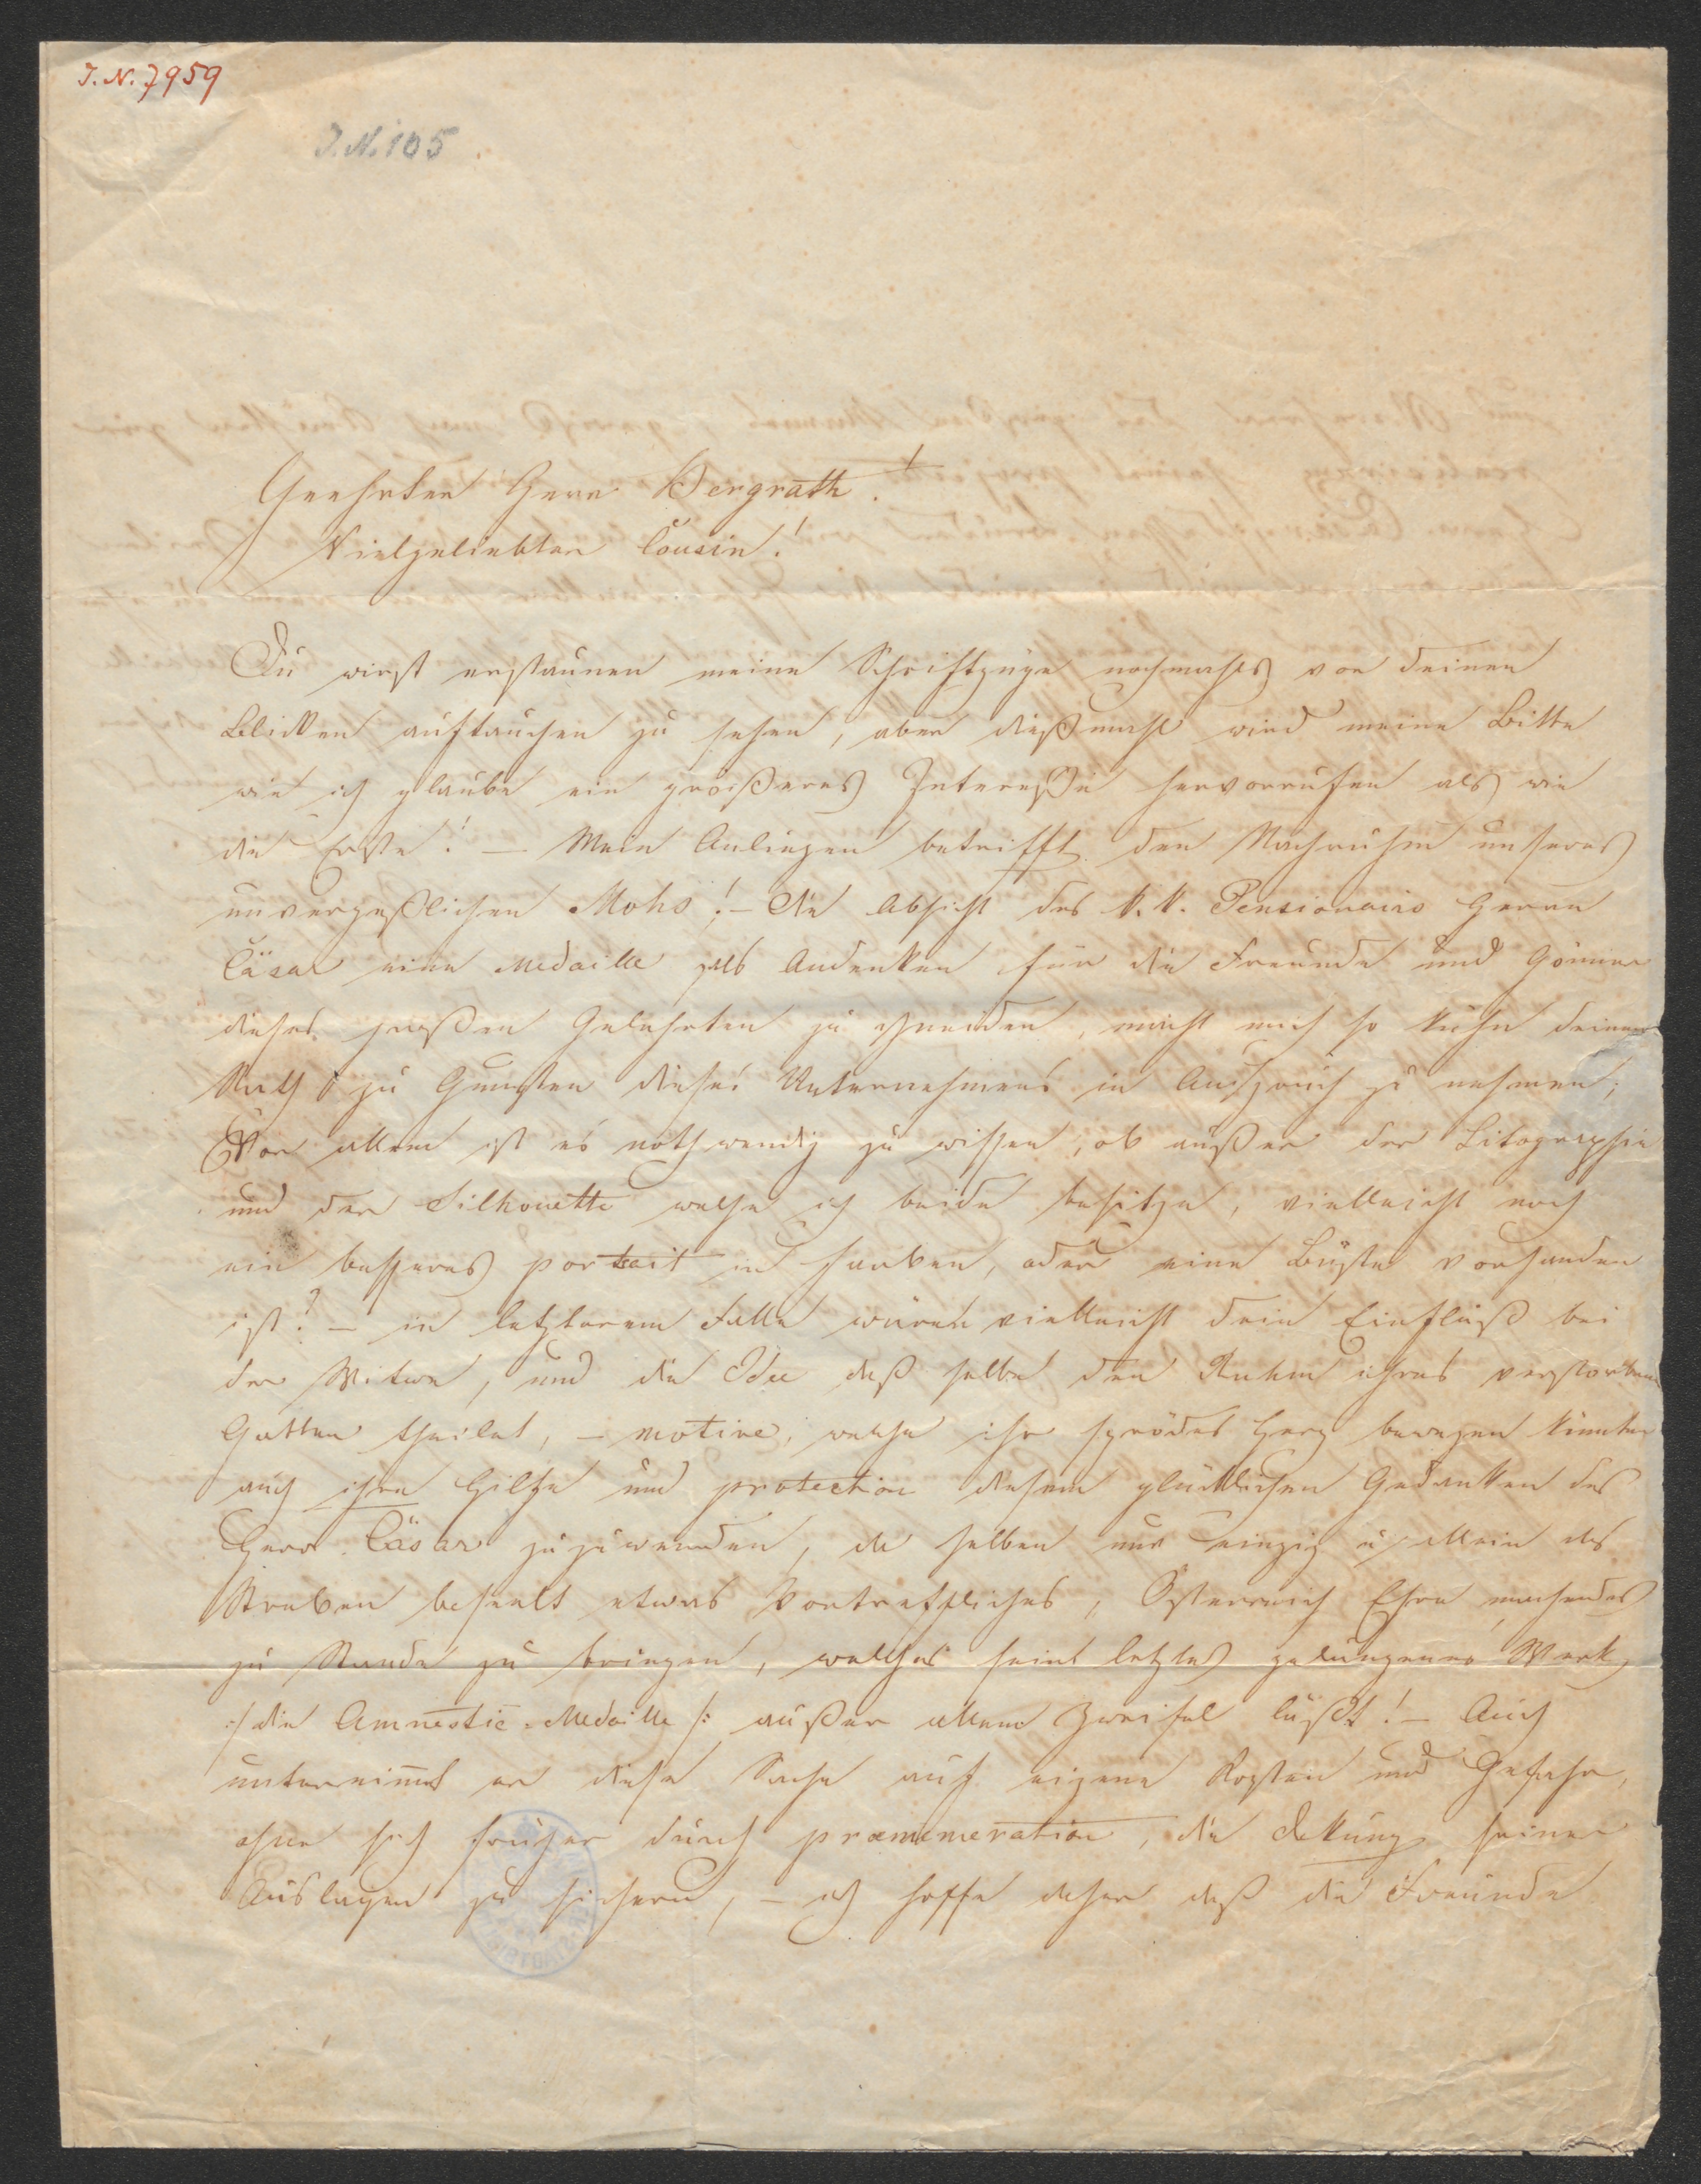 J. N. 7959
J. N. 105
Geehrter Herr Bergrath!
Vielgeliebter Cousin!
Du wirst erstaunen meine Schriftzüge nochmahls vor deinen
Blicken auftauchen zu sehen, aber dießmahl wird meine Bitte
wie ich glaube ein größeres Intereße hervorrufen als wie
die Erste! – Mein Anliegen betrifft den Nachruhm unseres
unvergeßlichen Mohs! – Die Absicht des k. k. Pensionairs Herrn
Cäsar eine Medaille als Andenken für die Freunde und Gönner
dieses großen Gelehrten zu schneiden, macht mich so kühn deinen
Rath zu Gunsten dieses Unternehmens in Anspruch zu nehmen;
Vor allem ist es nothwendig zu wissen, ob außer der Litographie
und der Silhouette welche ich beide besitze, vielleicht noch
ein besseres portrait in Farben, oder eine Büste vorhanden
ist? – in letzterem Falle wären vielleicht dein Einfluß bei
der Witwe, und die Idee daß selbe den Ruhm ihres verstorbenen
Gatten theilet, – motive, welche ihr sprödes Herz bewegen könnten
auch ihre Hilfe und protection diesem glücklichen Gedanken des
Herr Cäsar zuzuwenden, da selben nur einzig u allein das
Streben beseelt etwas Vortreffliches, Österreich Ehre machendes
zu Stande zu bringen, welches seine letztes gelungenes Werk
:/ die Amnestie-Medaille /: außer allem Zweifel läßt! – Auch
unternimmt er diese Sache auf eigene Kosten und Gefahr,
ohne sich früher durch prænumeration, die Dekung seiner
Auslagen zu sichern, – ich hoffe daher daß die Freunde